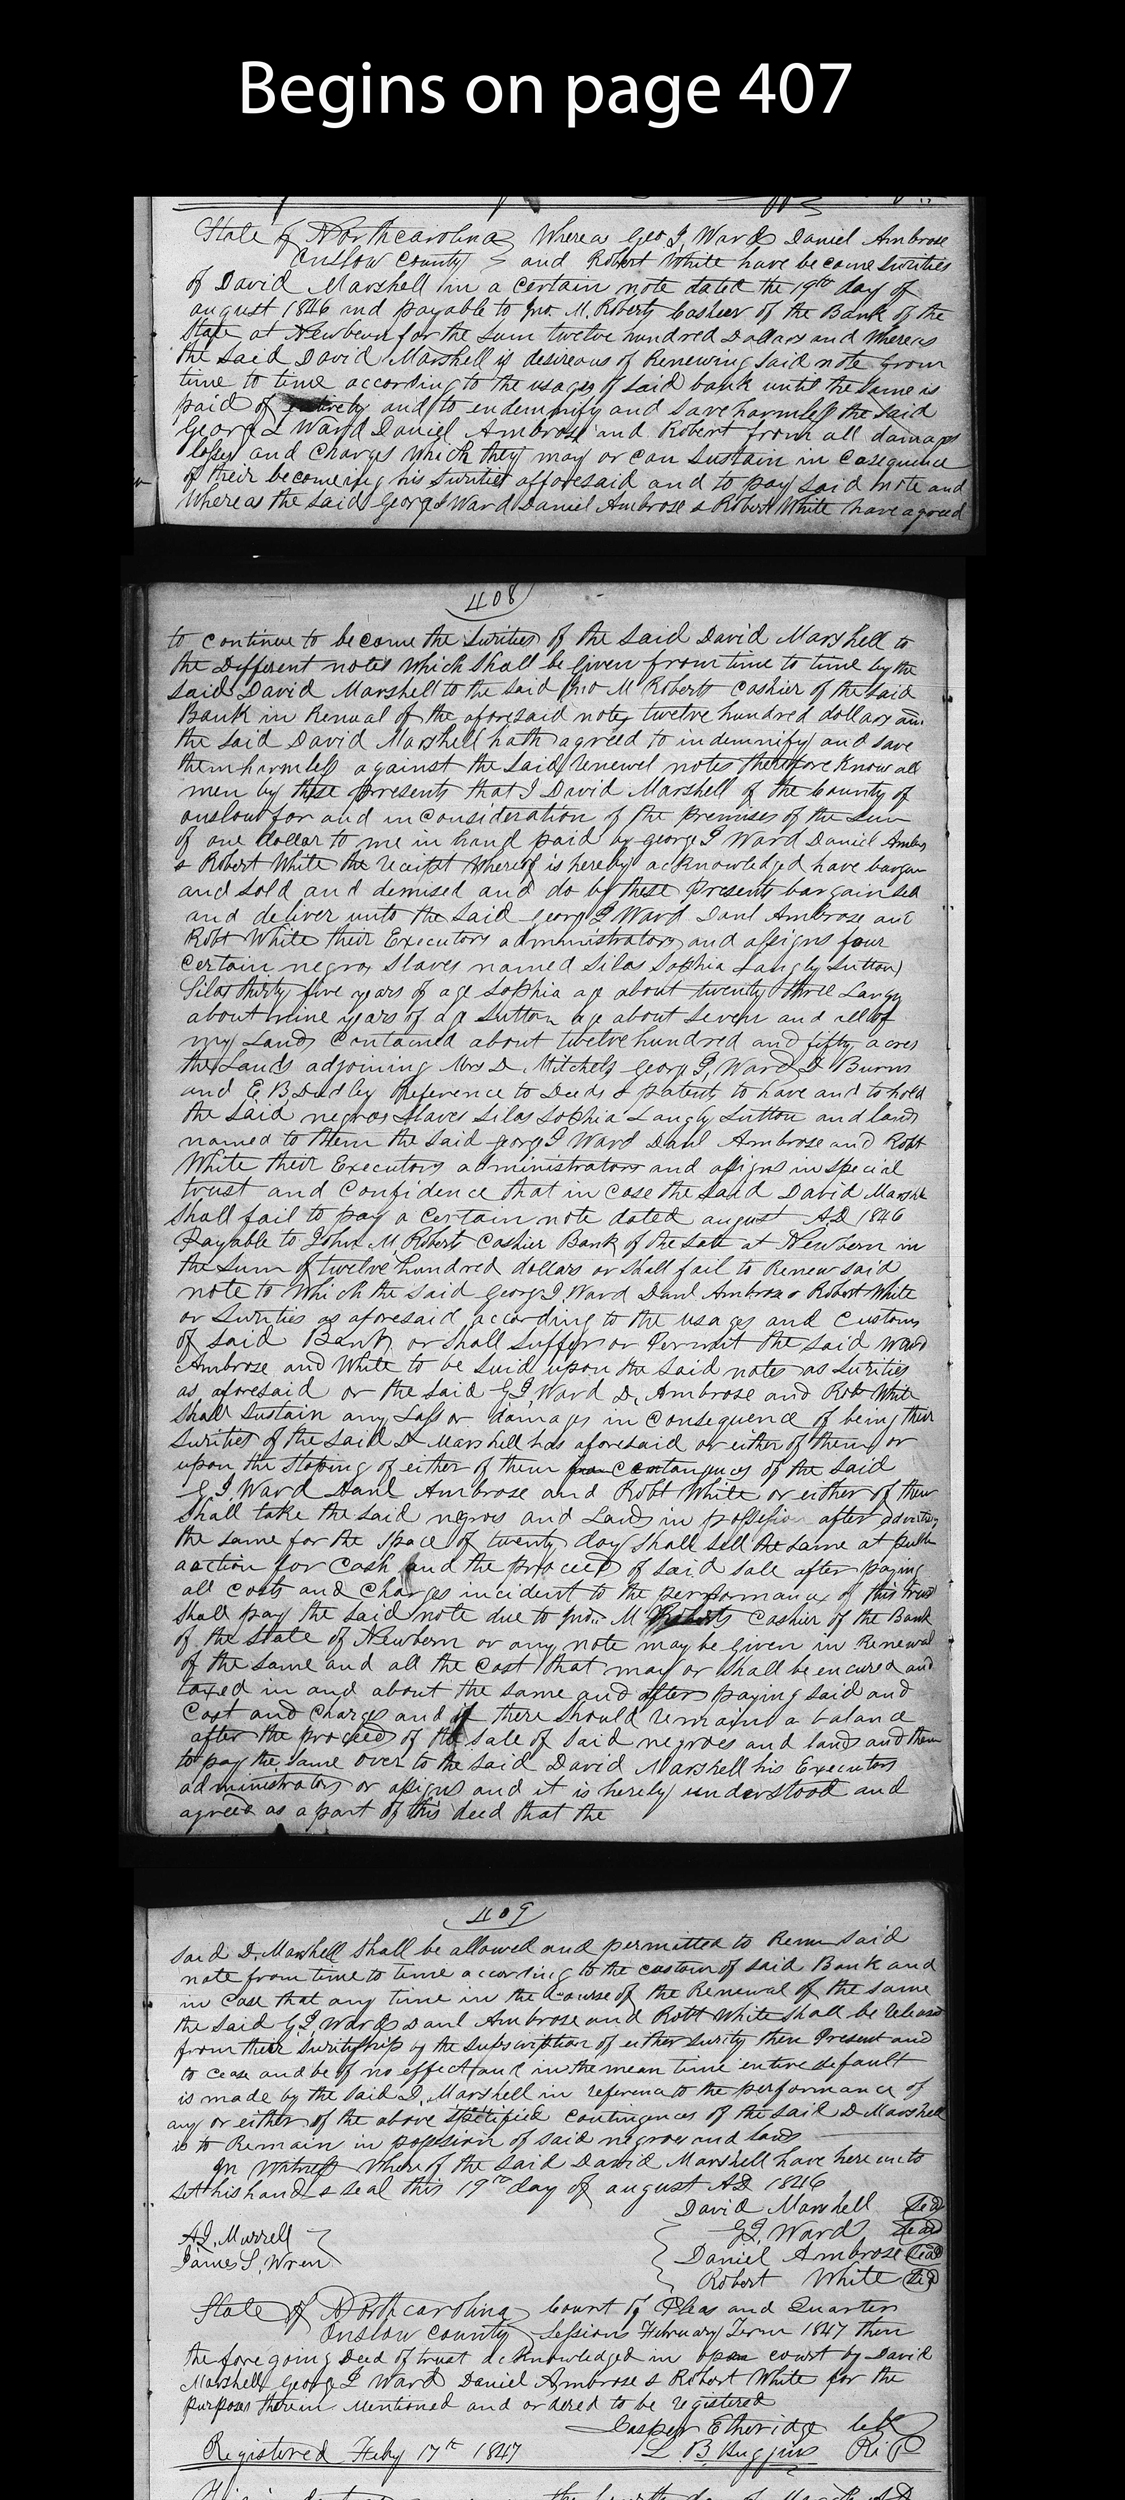 Begins on page 407
State of Northcarolina Wherea Geo I, Ward Daniel Ambrose
Onslow County and Robert White have become Surities
of David Marshell inn a certain note dated the 19th day of
august 1846 and payable to Jno. M. Roberts Casheer of the Bank of the
State at Newbern for the Sum twelve hundred Dollars and Whereas
the Said David Marshell is desireous of Renewing Said note from
time to time according to the usages of Said bank until the Same is
paid of entirely and to endemnify and Save harmless the Said
Georg I Ward Daniel Ambrose and Robert from all damages
losses and Charges Which they may or can Sustain in Casequence
of their becomeing his Surities afforesaid and to pay Said note and
Whereas the Said Georg I Ward Daniel Ambrose & Robert White have agreed
408
to continue to become the Surities of the Said David Marshell to
the Different notes Which Shall be Given from time to time by the
Said David Marshell to the Said Jno M Roberts Cashier of the Said
Bank in Renual of the aforesaid note, twelve hundred dollars and
the Said David Marshell hath agreed to indemnify and save
them harmless against the Said renewel notes therefore Know all
men by these presents that I David Marshell of the County of
onslow for and in Consideration of the premises of the Sum
of one dollar to me in hand paid by george I Ward Daniel Ambrs
& Robert White the receipt Whereof is hereby acknowledged have bargan
and Sold and demised and do by these Presents bargain sell
and deliver unto the Said georg I Ward Danl Ambrose and
Robt White their Executors administrators and assigns four
Certain negros Slaves named Silas Sophia Langly Sutton
Silas thirty five years of age Sophia age about twenty three Langy
about nine years of age Sutton age about Seven and all of
my Lands Contained about twelve hundred and fifty acres
the Lands adjoining Mrs D. Mitchels Georg I, Ward D Burns
and E, B, Dudley Reference to Deeds & patents to have and to hold
the Said negros Slaves Silas Sophia Langly Sutton and lands
named to them the Said georg I Ward Danl Ambrose and Robt
White their Executors administrators and assigns in special
trust and Confidence that in Case the Said David Marshe
Shall fail to pay a Certain note dated august AD 1846
Payable to John M. Robert Cashier Bank of the State at Newbern in
the Sum of twelve hundred dollars or Shall fail to Renew Said
note to Which the Said Georg I. Ward Danl Ambrose & Robert White
or Surities as aforesaid according to the usages and Customs
of said Bank or Shall Suffer or Permit the Said Ward
Ambrose and White to be Suid upon the Said notes as Surities
as aforesaid or the Said G I, Ward D, Ambrose and Robt White
Shall Sustain any Loss or damages in Consequence of being their
Surities of the Said D Marshell has aforesaid or either of them or
upon the Stoping of either of them Contanguces of the Said
G I, Ward Danl Ambrose and Robt White or either of them
Shall take the Said negros and Lands in possession after advertisg
the Same for the Space of twenty day Shall Sell the Same at public
auction for Cash and the proceed of said sale after paying
all Costs and Charges incident to the performance of this trust
Shall pay the Said note due to Jno.. M Roberts Cashier of the Bank
of the State of Newbern or any note may be Given in Renewal
of the Same and all the Cost that may or Shall be encured and
taxed in and about the Same and after paying said and
Cost and Charges and if there Should remains a balance
after the proceed of the sale of Said negroes and lands and them
to pay the Same over to the Said David Marshell his Executors
administrators or assigns and it is hereby understood and
agreed as a part of this deed that the
409
said D. Marshell Shall be allowed and permitted to Renu Said
note from time to time according to the custom of said Bank and
in Case that any time in the Course of the Renewal of the same
the Said G, I Ward Danl Ambrose and Robt White Shall be Released
from their Surityship by the Subscription of either Surity then Present and
to cease and be of no effect and in the mean time entire default
is made by the Said D, Marshell in reference to the performance of
any or either of the above Specified Contingences of the Said D Marshell
is to Remain in possesion of Said negroes and lands
In Witness Whereof the Said David Marshell have here unto
Set his hand & Seal this 19th day of august AD 1846
David Marshell Seal
G, I, Ward Seal
A, J, Murrell
Daniel Ambrose Seal
James S, Wren
Robert White Seal
State of Northcarolina Court of Pleas and Quarter
Onslow County Sessions February Term 1847 then
the fore going Deed of trust acknowledged in open court by David
Marshell Georg I Ward Daniel Ambrose & Robert White for the
purposes therein Mentioned and ordered to be registered
Jasper Etheridge Clk
Registered Feby 17th 1847 L B Huggins Reg